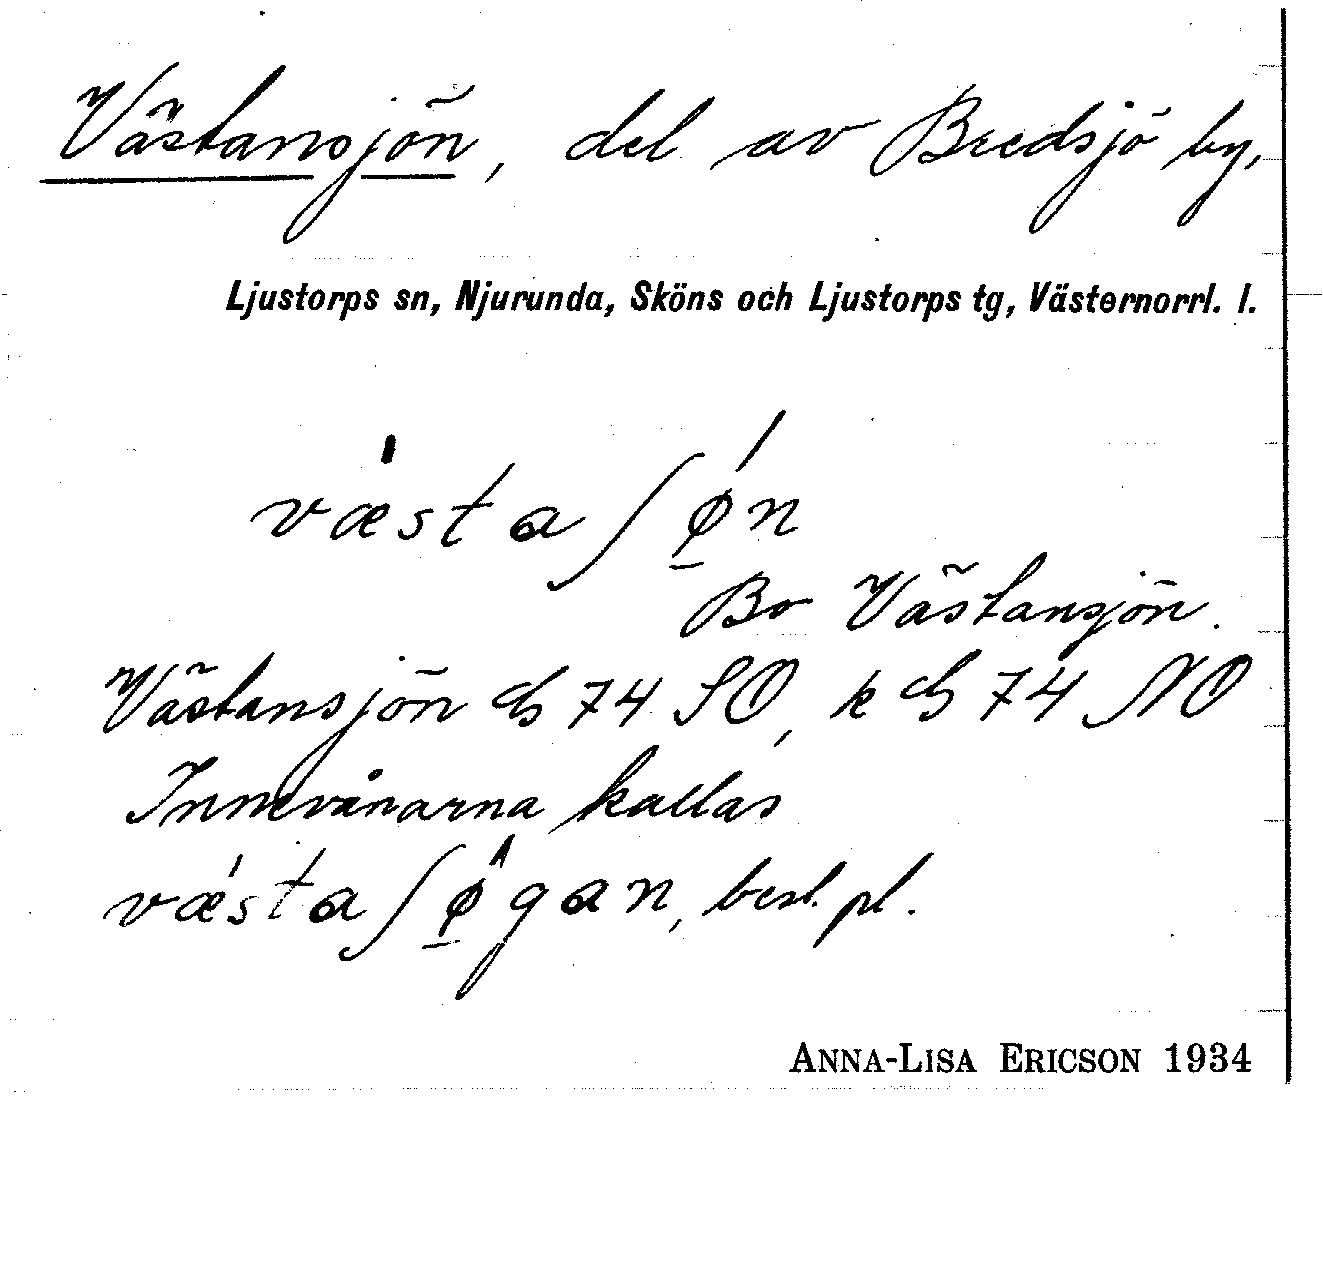 Västansjön, del av Bredsjö by,
Ljustorps sn, Njurunda, Sköns och Ljustorps tg, Västernorrl. l.
væ̍sta ʃǿ̠n
Bo Västansjön.
Västansjön 74 SO, k 74 NO
Innevånarna kallas
væ̍sta ʃø̠̂gan, best. pl.
ANNA-LISA ERICSON 1934